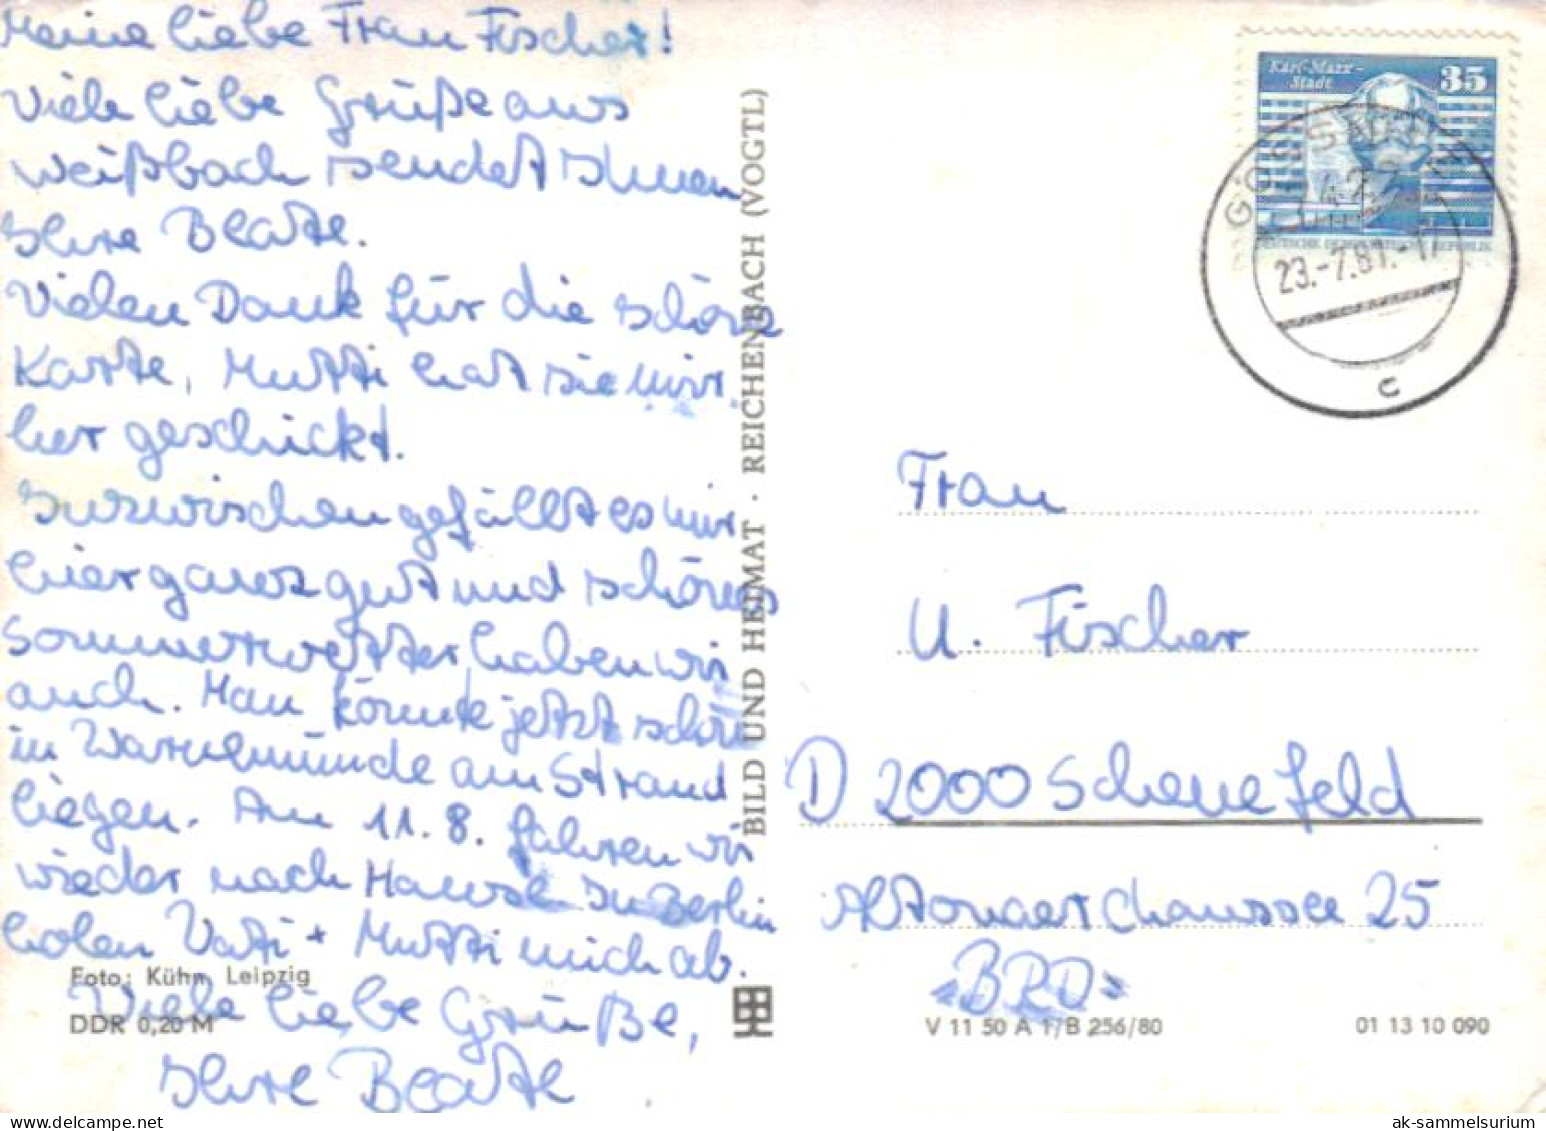 Meine liebe Frau Fischer!
Viele liebe Grüße aus
Weißbach sendet Ihnen
Ihre Beate.
Vielen Dank für die schöne
Karte, Mutti hat sie mir
her geschickt.
Inzwischen gefällt es mir
hier ganz gut und schönes
Sommerwetter haben wir
auch. Man könnte jetzt schön
in Warnemünde am Strand
liegen. Am 11. 8. fahren wir
wieder nach Hause. In Berlin
holen Vati + Mutti mich ab.
Viele liebe Grüße,
Ihre Beate
Foto: Kühn, Leipzig
DDR 0,20 M
BILD UND HEIMAT · REICHENBACH (VOGTL)
Karl-Marx-
Stadt
35
DEUTSCHE DEMOKRATISCHE REPUBLIK
GÖSSNITZ
742
23.-7.81.-17
c
Frau
U. Fischer
D 2000 Schenefeld
Altonaer Chaussee 25
"BRD"
V 11 50 A 1/B 256/80
01 13 10 090
ak-sammelsurium